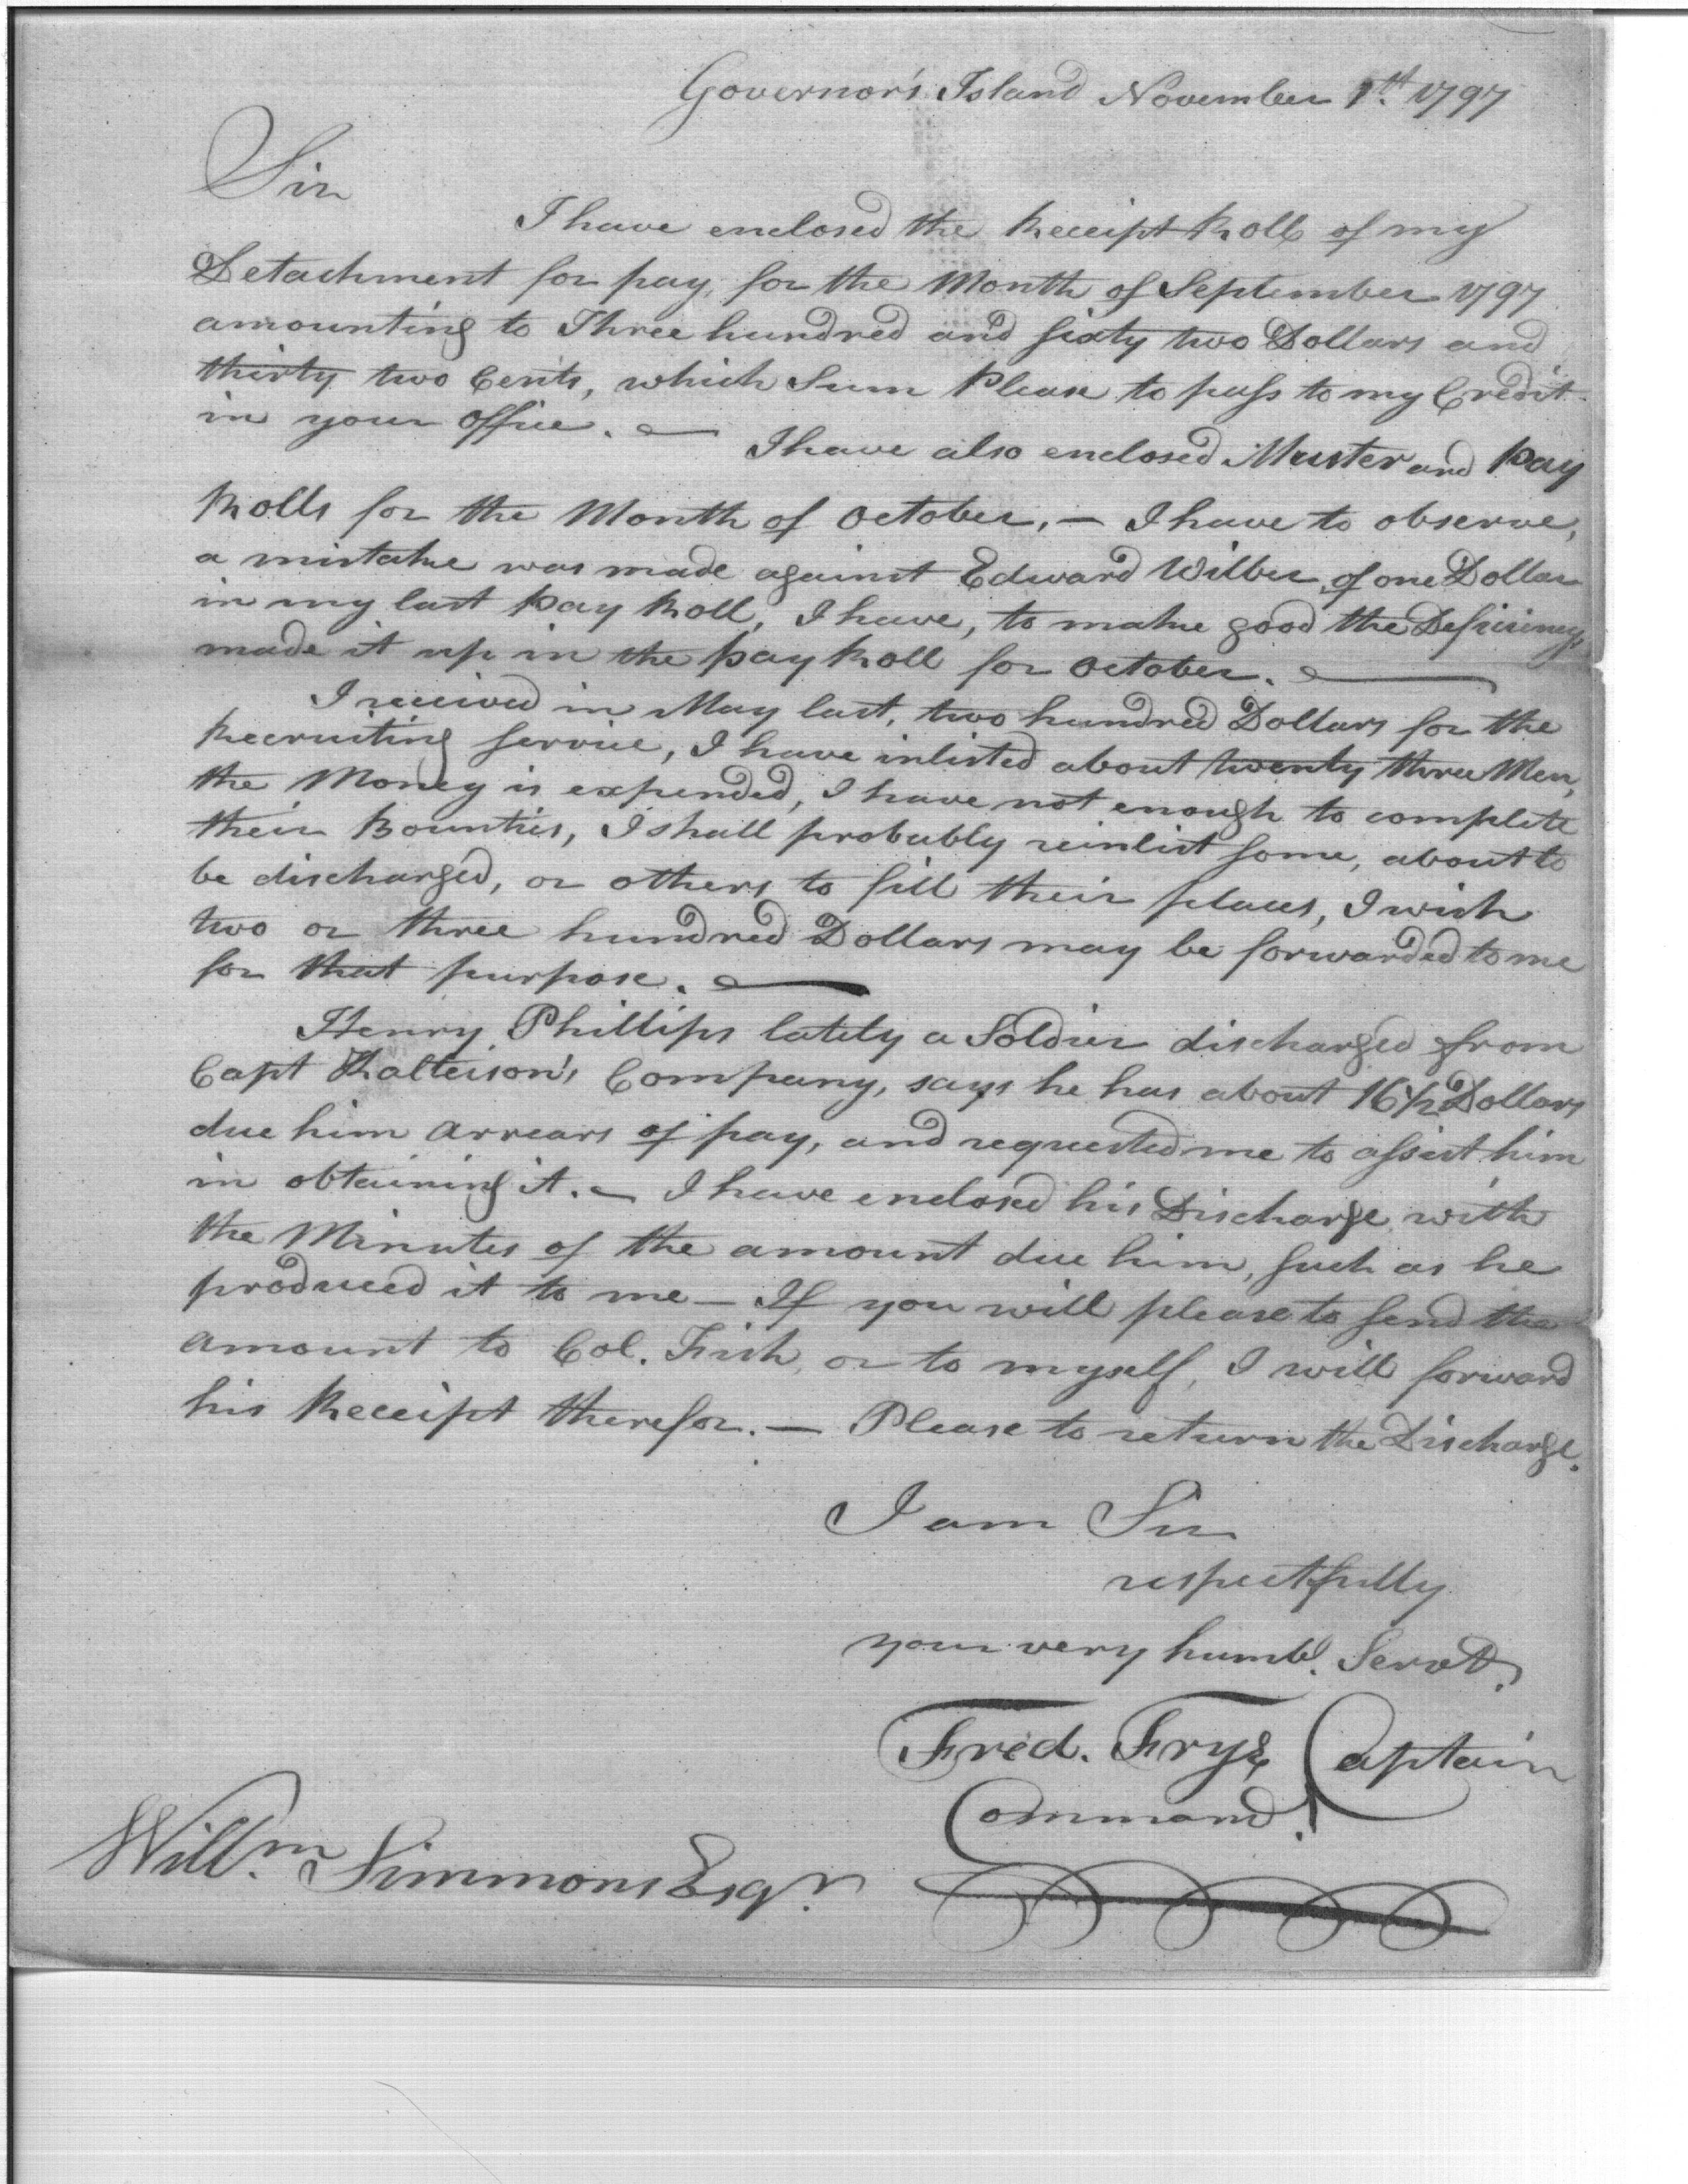 Governor's Island November 1st. 1797
Sir
I have enclosed the Receipt Roll of my
Detachment for pay, for the Month of September 1797
amounting to Three hundred and sixty two Dollars and
thirty two Cents, which Sum Please to pass to my Credit
in your office. —
I have also enclosed Muster and Pay
Rolls for the Month of October, — I have to observe,
a mistake was made against Edward Wilber of one Dollar
in my last Pay Roll, I have, to make good the Deficiency,
made it up in the Pay Roll for October. —
I received in May last, two hundred Dollars for the
Recruiting service, I have inlisted about twenty three Men,
the Money is expended, I have not enough to complete
their Bounties, I shall probably reinlist some, about to
be discharged, or others to fill their places, I wish
two or three hundred Dollars may be forwarded to me
for that purpose. —
Henry Phillips lately a Soldier discharged from
Capt Company, says he has about 16½ Dollars
due him arrears of pay, and requested me to assist him
in obtaining it. — I have enclosed his Discharge with
the Minutes of the amount due him, such as he
produced it to me — If you will please to send the
amount to Col. Fish, or to myself, I will forward
his Receipt therefor. — Please to return the Discharge.
I am Sir
respectfully
your very humbl. Servt.
Fred. Frye Captain
Command.
Willm. Simmons Esqr.